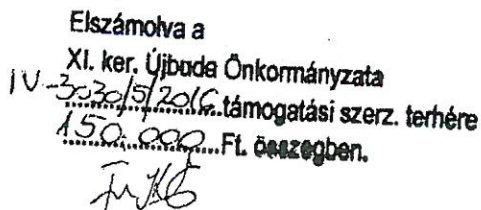 Elszámolva a
XI. ker. Újbuda Önkormányzata
IV-3030/5/2016 támogatási szerz. terhére
150.000 Ft. összegben.